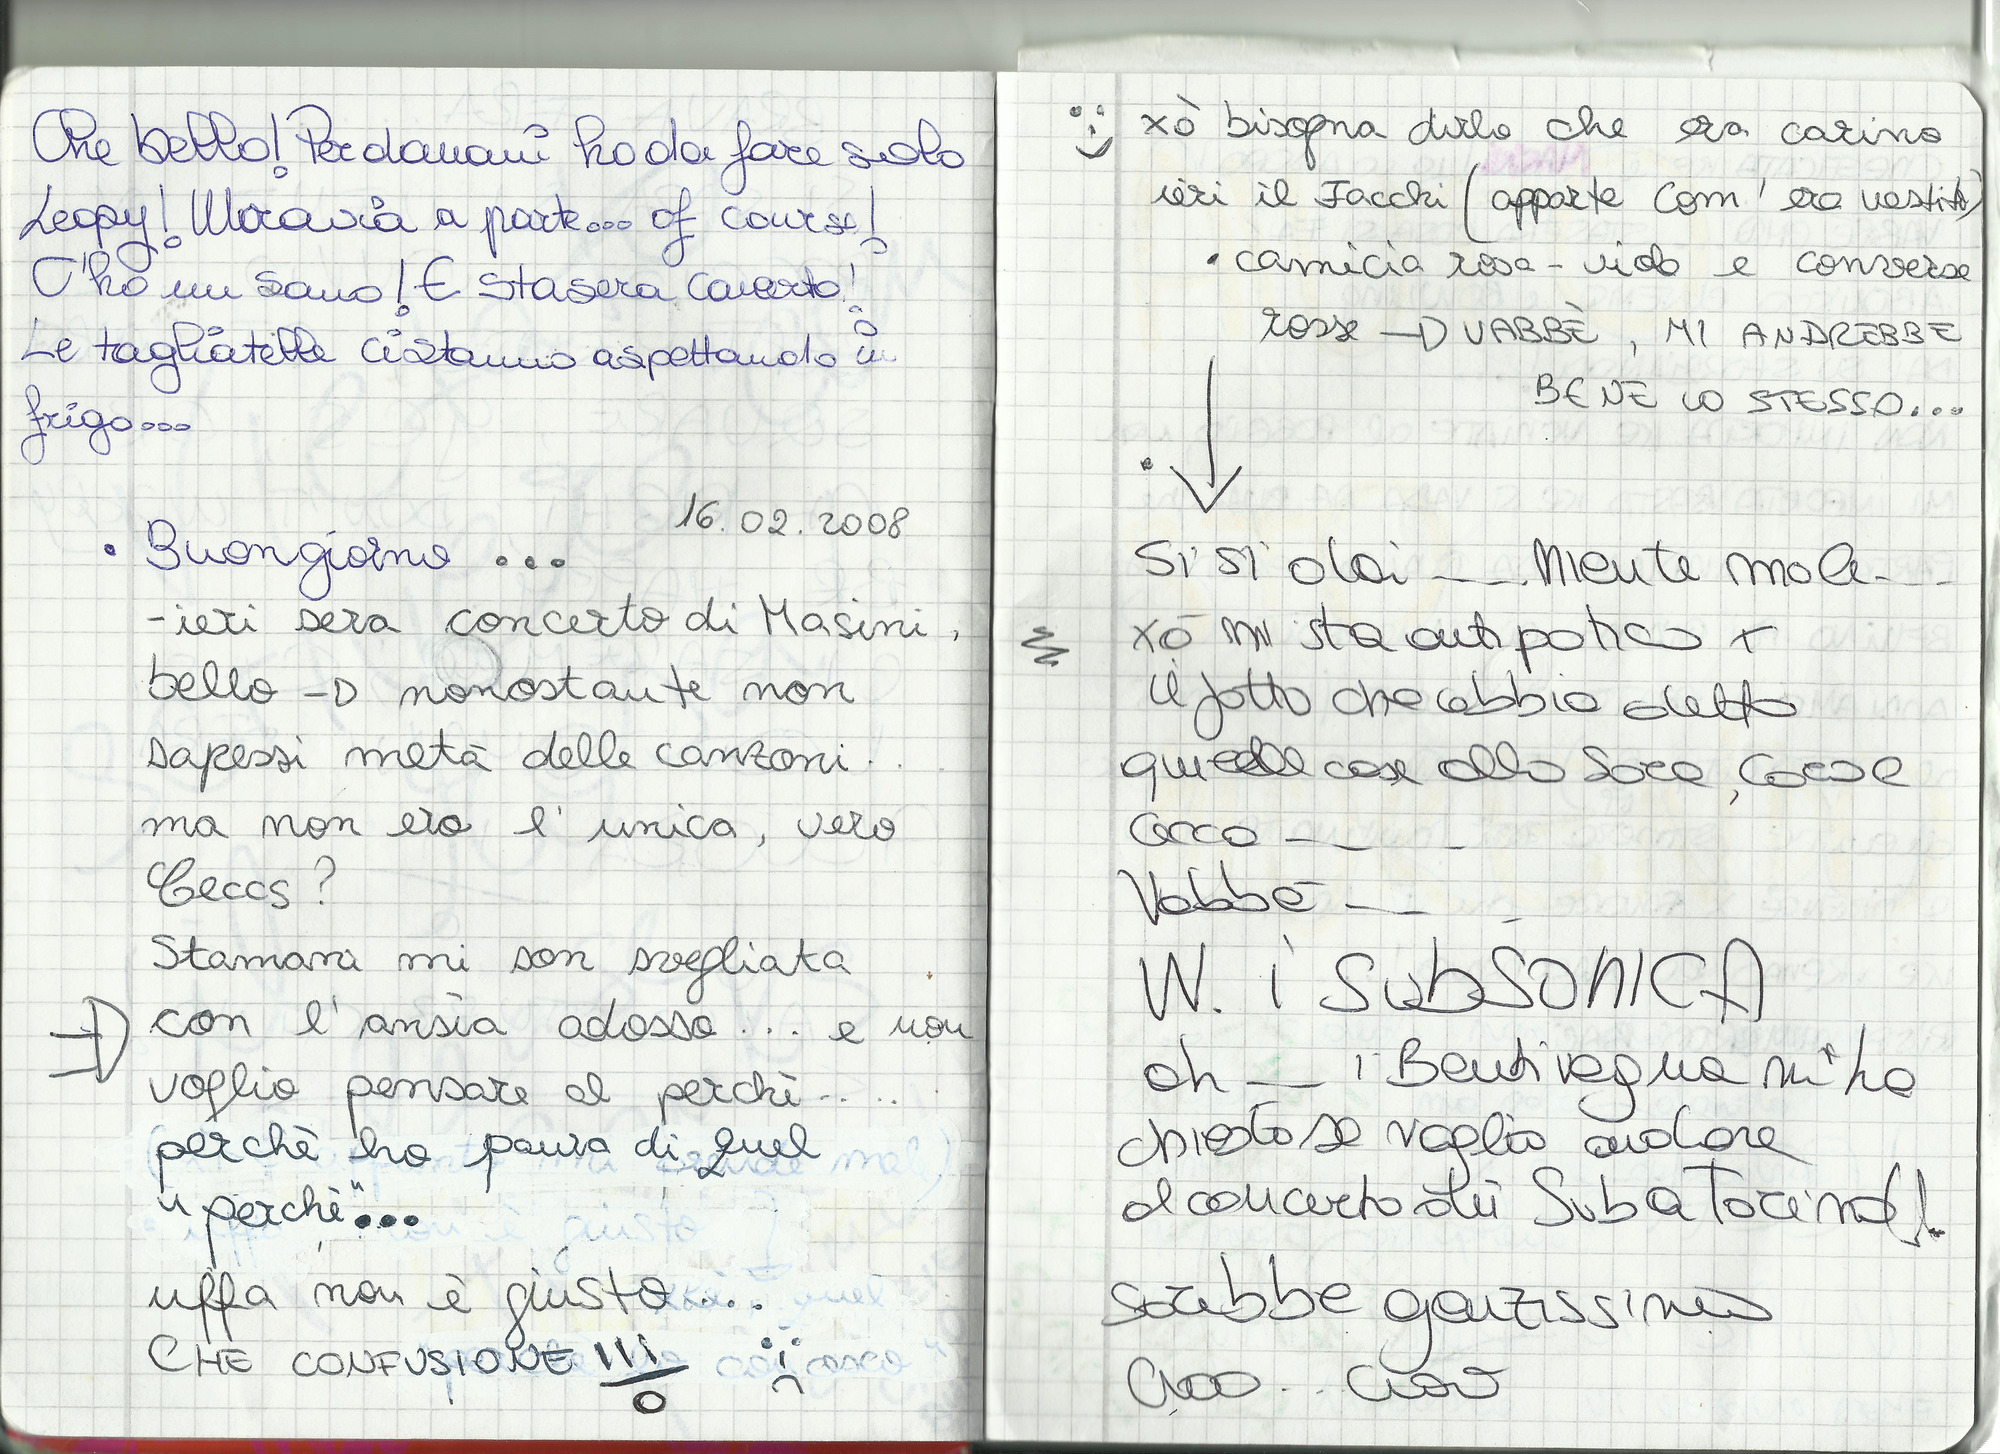 Che bello! Per domani ho da fare solo
Leopy! Moravia a parte... of course!
C'ho un sono! E stasera concerto!
Le tagliatelle ci stanno aspettando in
frigo...
16.02.2008
• Buongiorno ...
- ieri sera concerto di Masini,
bello -D nonostante non
sapessi metà delle canzoni...
ma non ero l'unica, vero
Ceccs?
Stamani mi son svegliata
con l'ansia adosso... e non
voglio pensare al perchè....
perchè ho paura di quel
"perchè"...
uffa non è giusto...
CHE CONFUSIONE !!!
xò bisogna dirlo che era carino
ieri il Facchi (apparte com'era vestito)
• camicia rosa-viola e converse
rosse -D VABBÈ, MI ANDREBBE
BENE LO STESSO...
Si si dai ... Mente male...
xò mi sta antipatico x
il fatto che abbia detto
quelle cose alla Sara, Cocca
cocca ...
Vabbè ...
W. i SubSONICA
oh ... i Bentivegna mi ha
chiesto se voglio andare
al concerto dei Sub a Torino!!
sarebbe ganzissimo
Ciao... Ciao